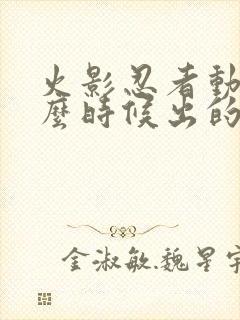 火影忍者動
麼時候出的
金淑敏魏星宇